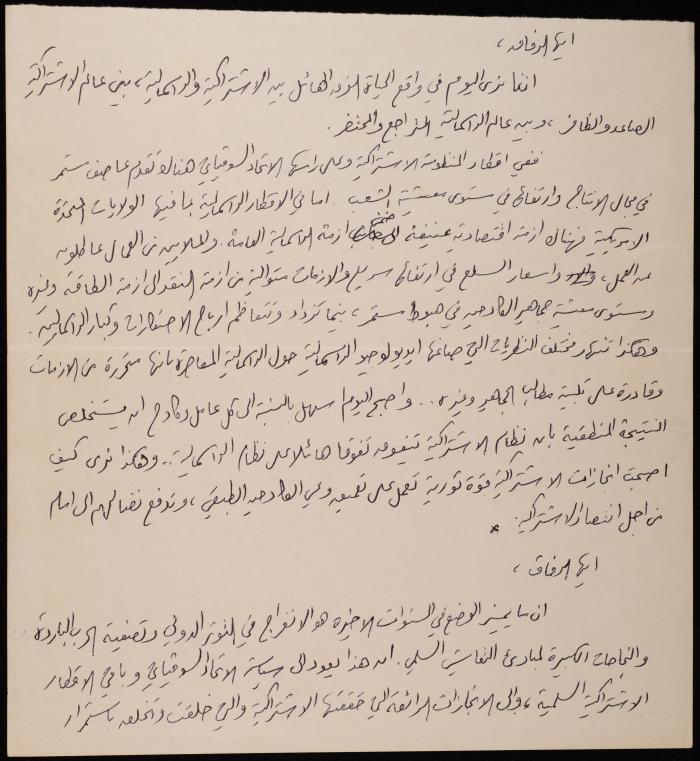 ايها الرفاق،
اننا نرى اليوم في واقع الحياة الفرق الهائل بين الاشتراكية والراسمالية، بين عالم الاشتراكية
الصاعد والظافر، وبين عالم الراسمالية المتراجع والمحتضر.
ففي اقطار المنظومة الاشتراكية وعلى راسها الاتحاد السوفياتي هنالك تقدم عاصف مستمر
في مجال الانتاج وارتفاع في مستوى معيشة الشعب. اما في الاقطار الراسمالية بما فيها الولايات المتحدة
الامريكية فهناك ازمة اقتصادية عنيفة ضمن ازمة الراسمالية العامة. والملايين من العمال عاطلون
عن العمل، واسعار السلع في ارتفاع سريع والازمات متوالية من ازمة النقد الى ازمة الطاقة وغيره
ومستوى معيشة جماهير الكادحين في هبوط مستمر، بينما تزداد وتتعاظم ارباح الاحتكارات وكبار الراسماليين.
وهكذا تنهار مختلف النظريات التي صاغها ايديولوجيو الراسمالية حول الراسمالية المعاصرة بانها متحررة من الازمات
وقادرة على تلبية مطالب الجماهير وغيره.. واصبح اليوم سهل بالنسبة الى كل عامل وكادح ان يستخلص
النتيجة المنطقية بان نظام الاشتراكية يتفوق تفوقا هائلا على نظام الراسمالية.. وهكذا نرى كيف
اصبحت انجازات الاشتراكية قوة ثورية تعمل على تعميق وعي الكادحين الطبقي، وتدفع نضالهم الى امام
من اجل انتصار الاشتراكية.
ايها الرفاق،
ان ما يميز الوضع في السنوات الاخيرة هو الانفراج في التوتر الدولي وتصفية الحرب الباردة
والنجاحات الكبيرة لمبادئ التعايش السلمي. ان هذا يعود الى سياسة الاتحاد السوفياتي وباقي الاقطار
الاشتراكية السلمية، والى الانجازات الرائعة التي حققتها الاشتراكية والتي خلقت وتخلق باستمرار